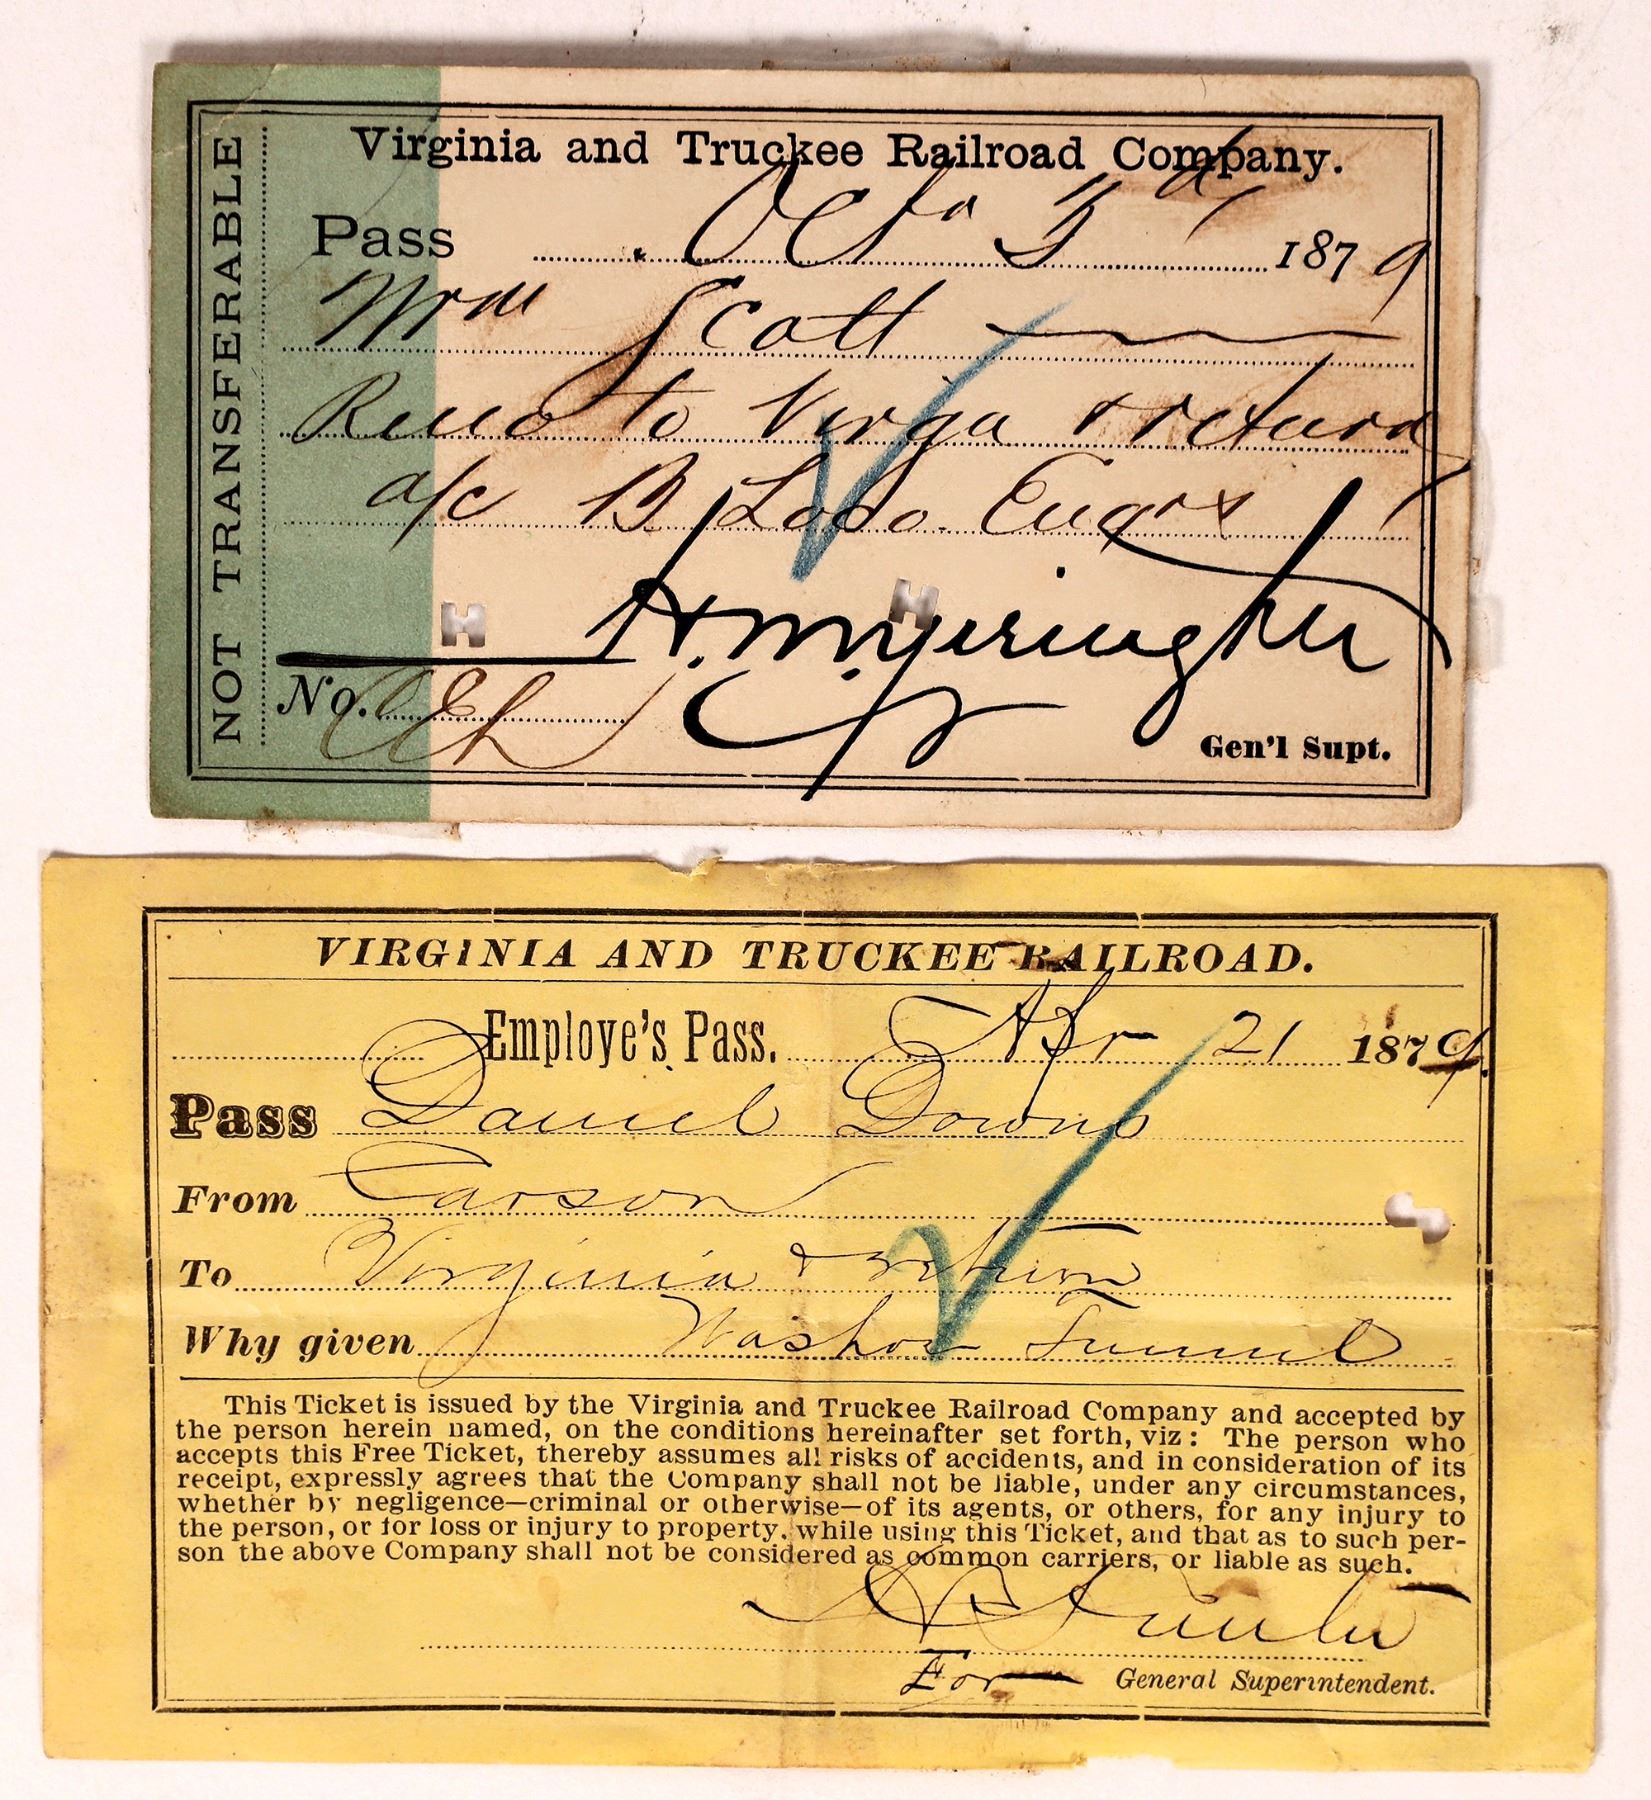 NOT TRANSFERABLE
Virginia and Truckee Railroad Company.
Pass Octo 1879
Wm Scott
Reno to Virga & return
a/c B. Loco. Engrs
H. M. Yerington
No.
Gen'l Supt.
VIRGINIA AND TRUCKEE RAILROAD.
Employe's Pass. Apr 21 1879.
Pass Daniel Downs
From Carson
To Virginia & return
Why given Washoe Tunnel
This Ticket is issued by the Virginia and Truckee Railroad Company and accepted by
the person herein named, on the conditions hereinafter set forth, viz: The person who
accepts this Free Ticket, thereby assumes all risks of accidents, and in consideration of its
receipt, expressly agrees that the Company shall not be liable, under any circumstances,
whether by negligence—criminal or otherwise—of its agents, or others, for any injury to
the person, or for loss or injury to property, while using this Ticket, and that as to such per-
son the above Company shall not be considered as common carriers, or liable as such.
For General Superintendent.